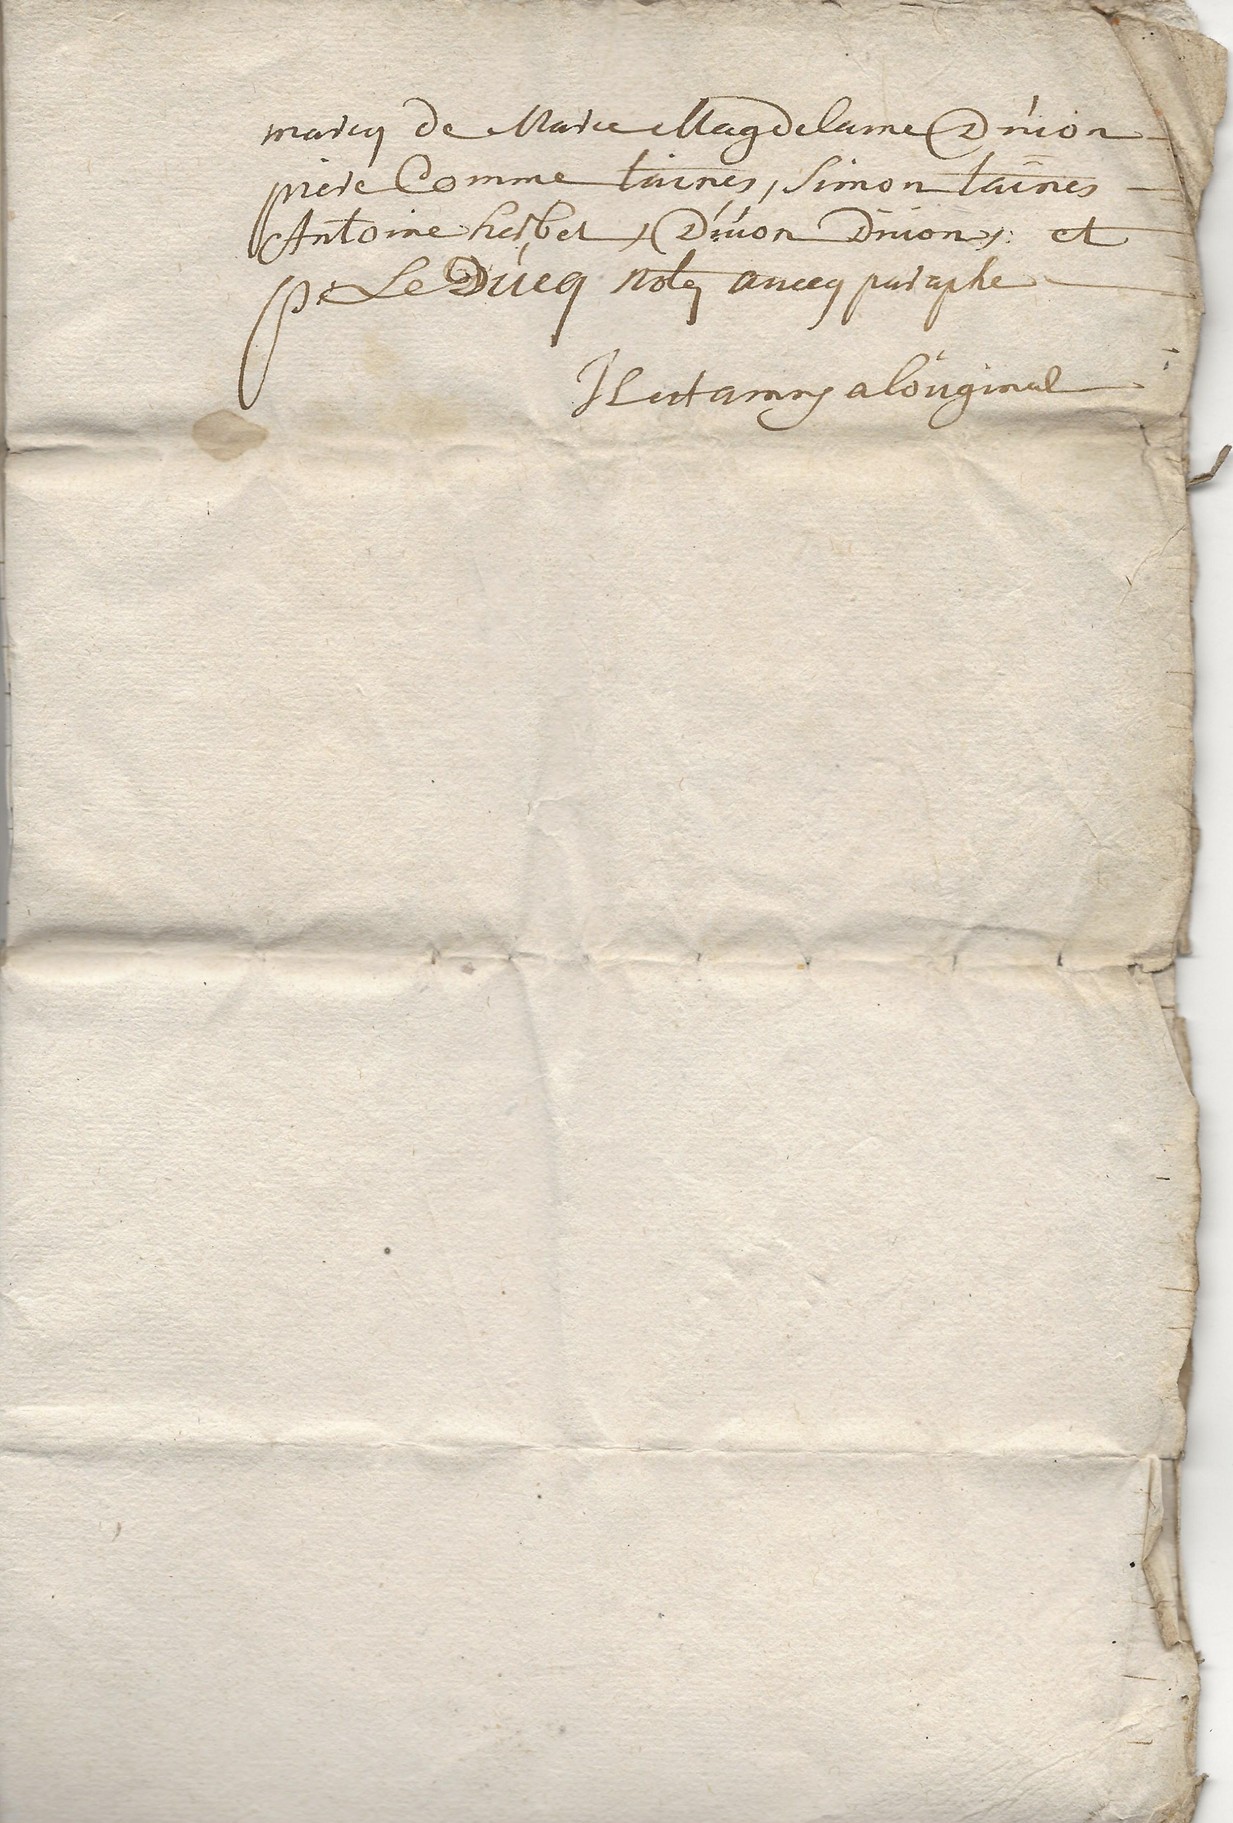 marcq de Marie Magdelaine Diuion
piere Comme taines, Simon taines
Antoine herbet, Diuon Diuion, et
pr Le Ducq notes auecq paraphe
Il est ainsy a loriginal